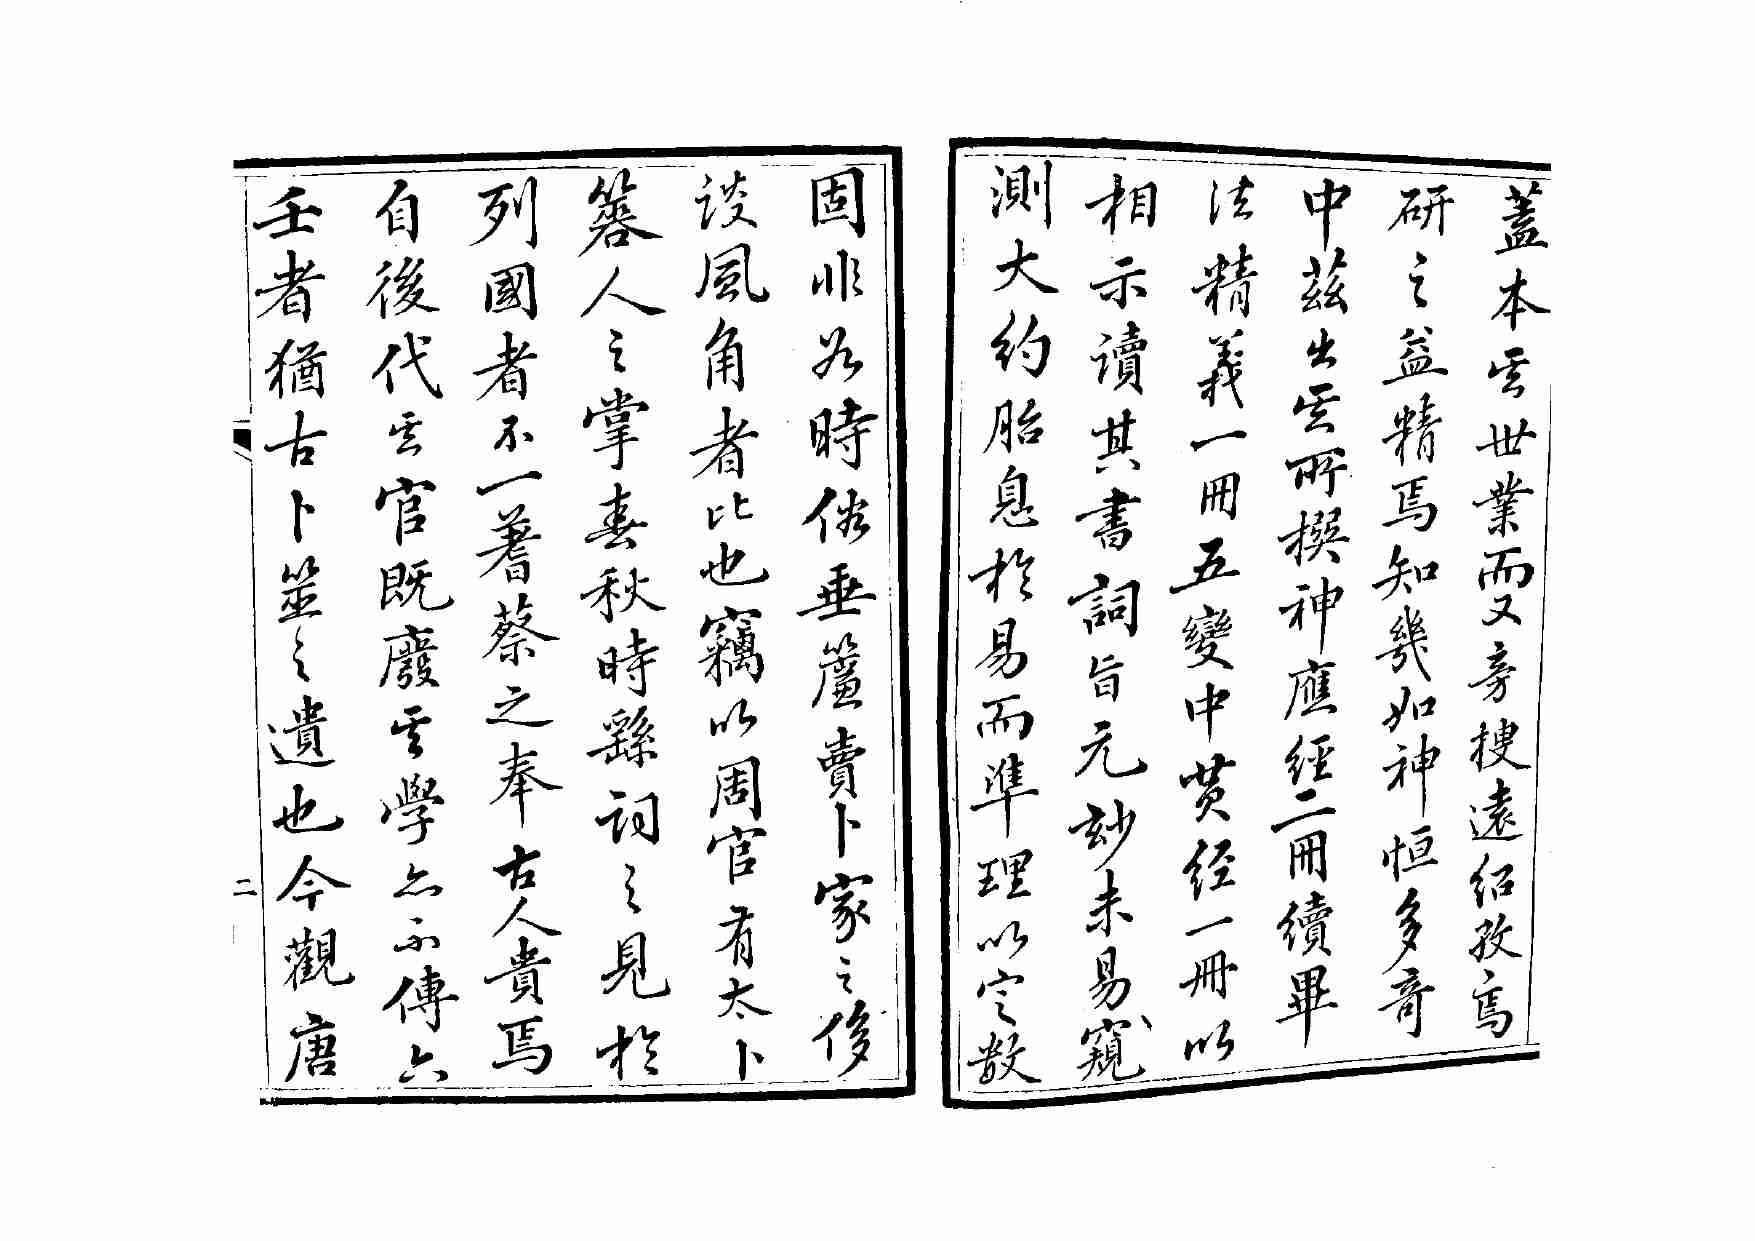 蓋本其世業而又旁搜遠紹孜焉
研之益精焉知幾如神恒多奇
中茲出其所撰神應經二冊續畢
法精義一冊五變中黃经一冊以
相示讀其書詞旨元玅未易窺
測大約胎息於易而準理以定數
固非若時俗垂簾賣卜家之侈
談風角者比也竊以周官有太卜
簭人之掌春秋時繇词之見於
列國者不一蓍蔡之奉古人貴焉
自後代其官既廢其學亦不傳六
壬者猶古卜筮之遺也今觀唐
二